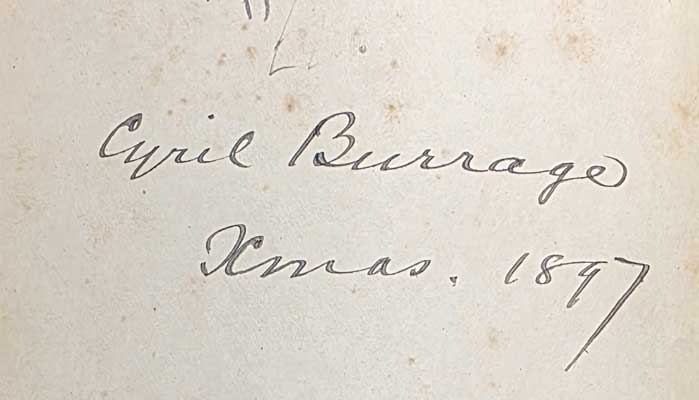 Cyril Burrage
Xmas. 1897